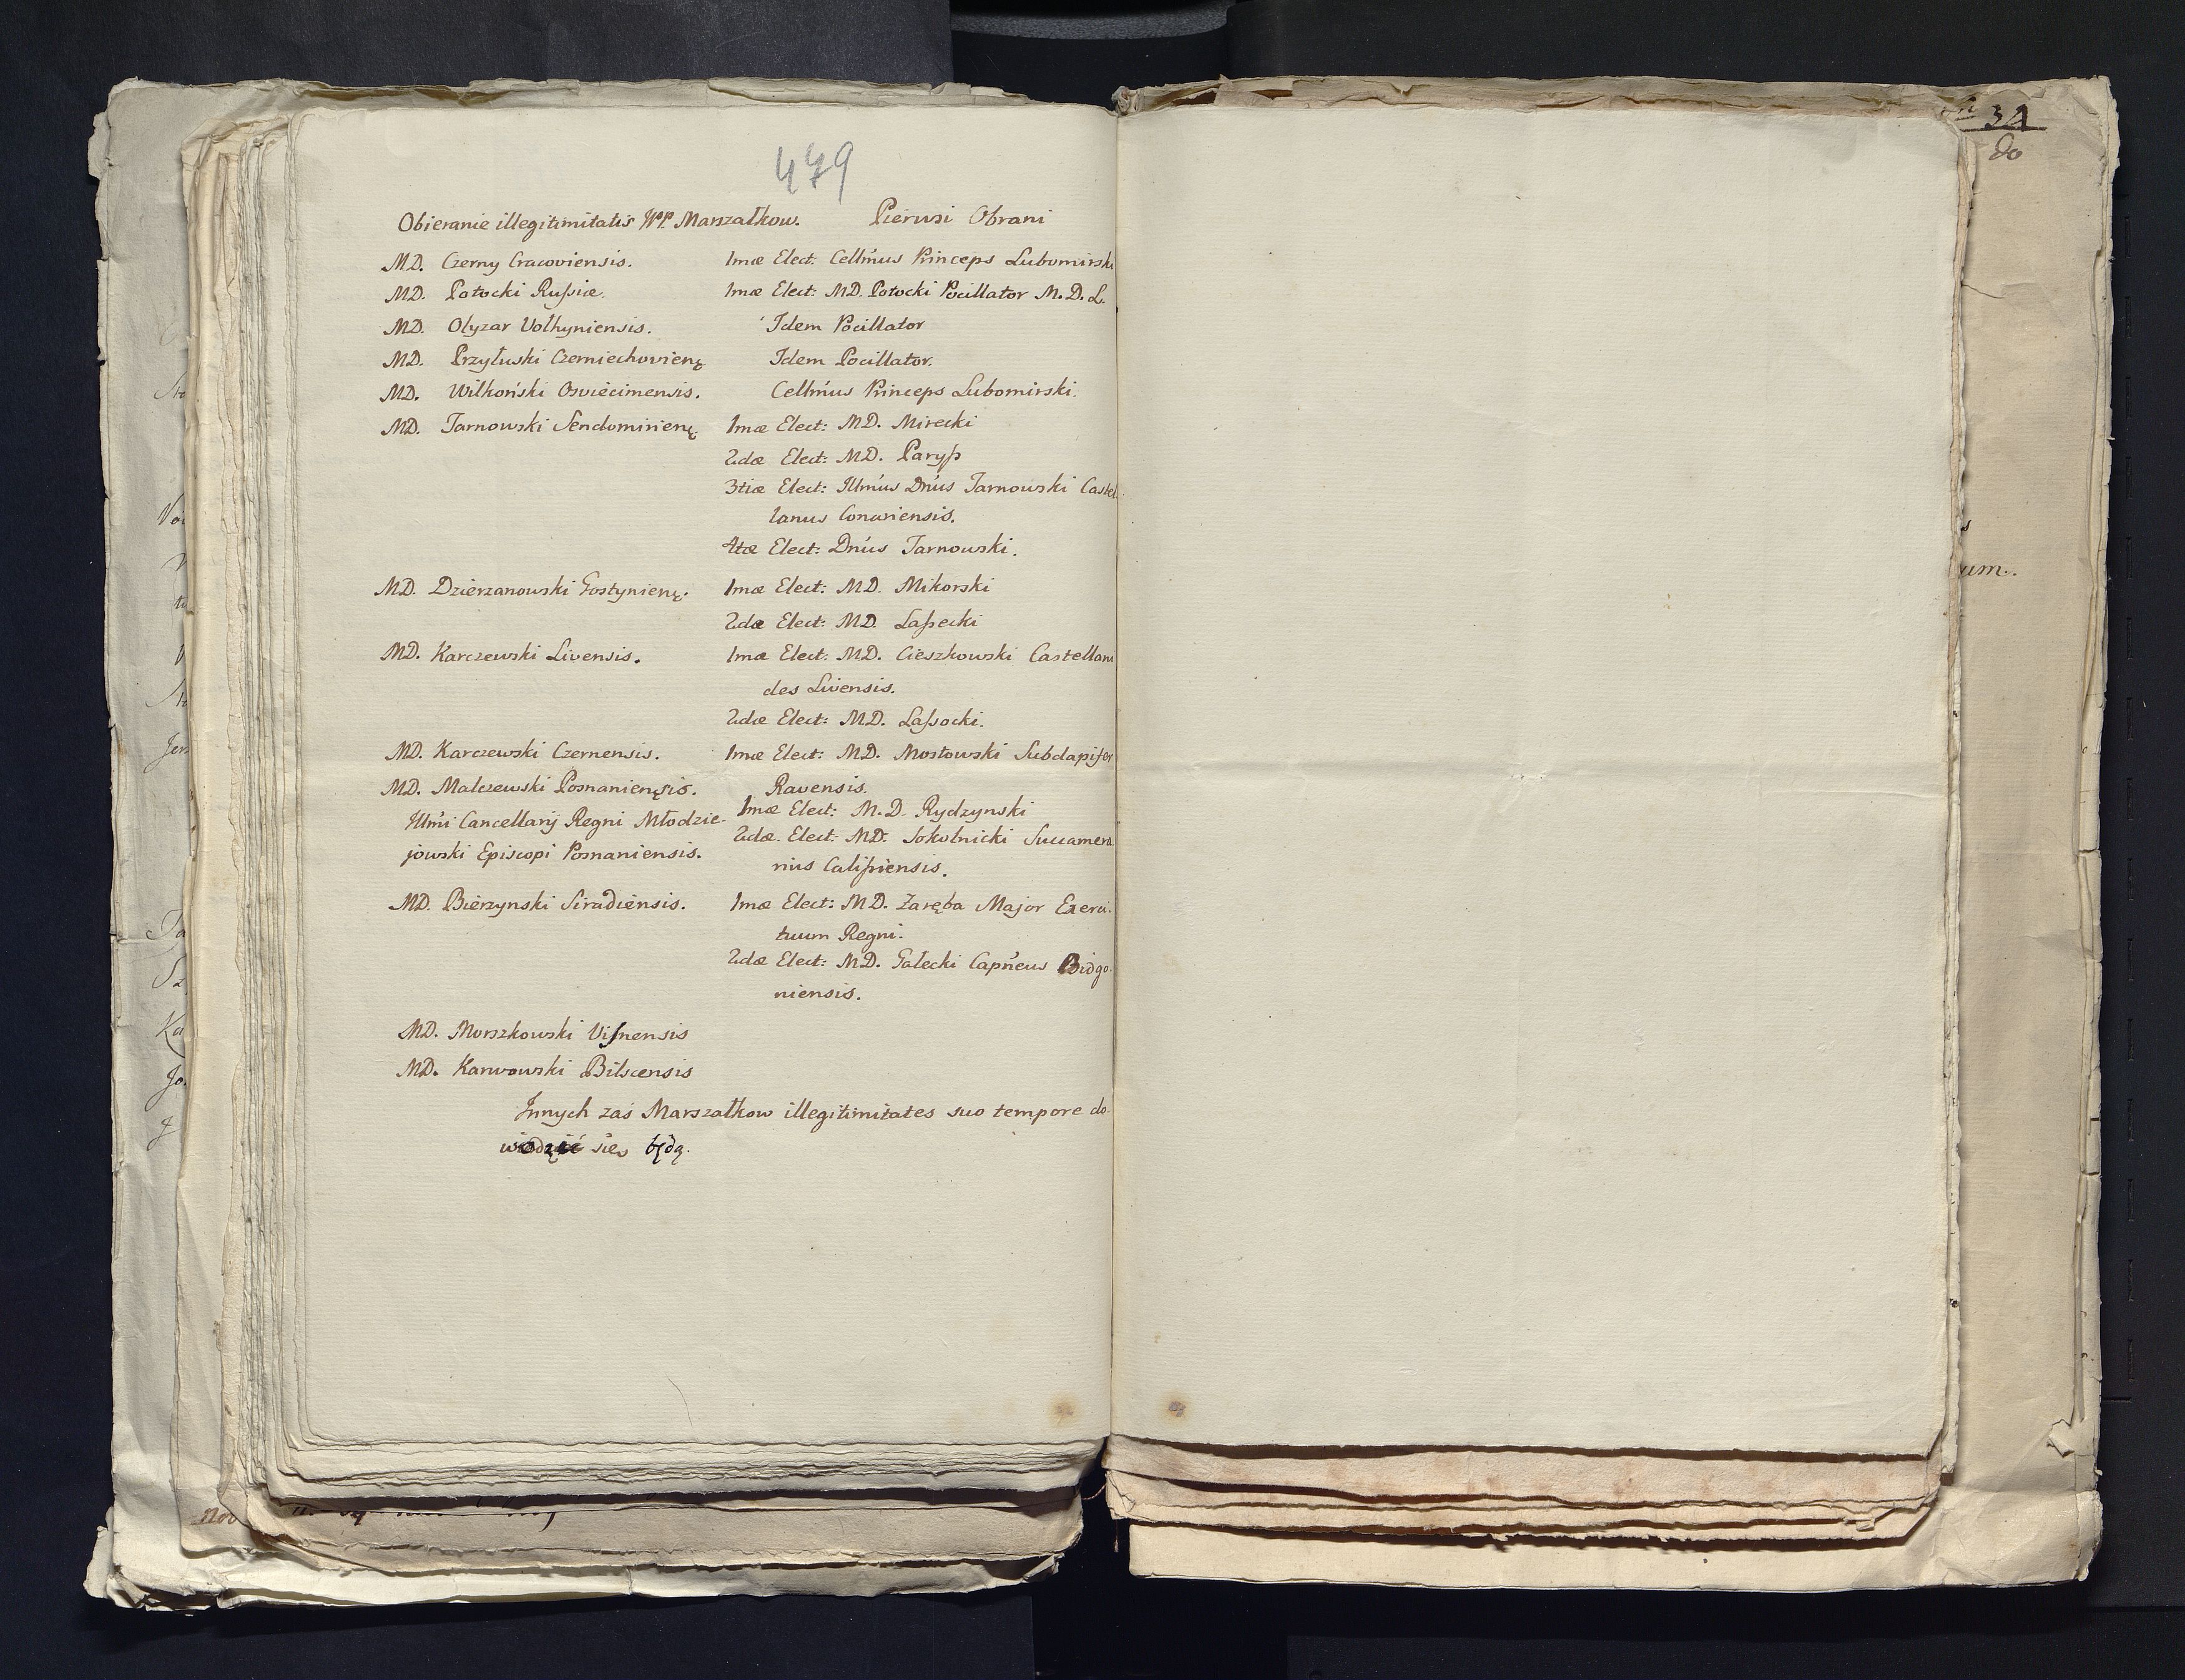 479
Obieranie illegitimitatis WP. Marszałkow. Pierwsi Obrani
MD. Czerny Cracoviensis. 1mæ Elect: Cellm̃us Princeps Lubomirski
MD. Potocki Russiæ. 1mæ Elect: MD. Potocki Pocillator M.D.L.
MD. Olyzar Volhyniensis. Idem Pocillator
MD. Przyłuski Czerniechovienę Idem Pocillator.
MD. Wilkoński Osviecimensis. Cellm̃us Princeps Lubomirski.
MD. Tarnowski Sendomirienę. 1mæ Elect: MD. Mirecki
2dæ Elect: MD. Paryss
3tiæ Elect: Illm̃us Dñus Tarnowski Castel
lanus Conariensis.
4tæ Elect: Dñus Tarnowski.
MD. Dzierzanowski Gostynienę. 1mæ Elect: MD. Mikorski
2dæ Elect: MD. Lassecki
MD. Karczewski Livensis. 1mæ Elect: MD. Cieszkowski Castellani
des Livensis.
2dæ Elect: MD. Lassocki.
MD. Karczewski Czernensis. 1mæ Elect: MD. Mostowski Subdapifer
Ravensis.
MD. Malczewski Posnanienęsis. 1mæ Elect: M.D. Rydzynski
Illm̃i Cancellarij Regni Młodzie- 2dæ. Elect: MD. Sokolnicki Succamera
jowski Episcopi Posnaniensis. rius Calissiensis.
MD. Bierzynski Siradiensis. 1mæ Elect: MD. Zaręba Major Exerci-
tuum Regni.
2dæ Elect: MD. Gałecki Capñeus Bidgo-
niensis.
MD. Morszkowski Visnensis
MD. Karwowski Bilscensis
Innych zaś Marszałkow illegitimitates suo tempore do-
wiedzić się będą.
34
do
um.